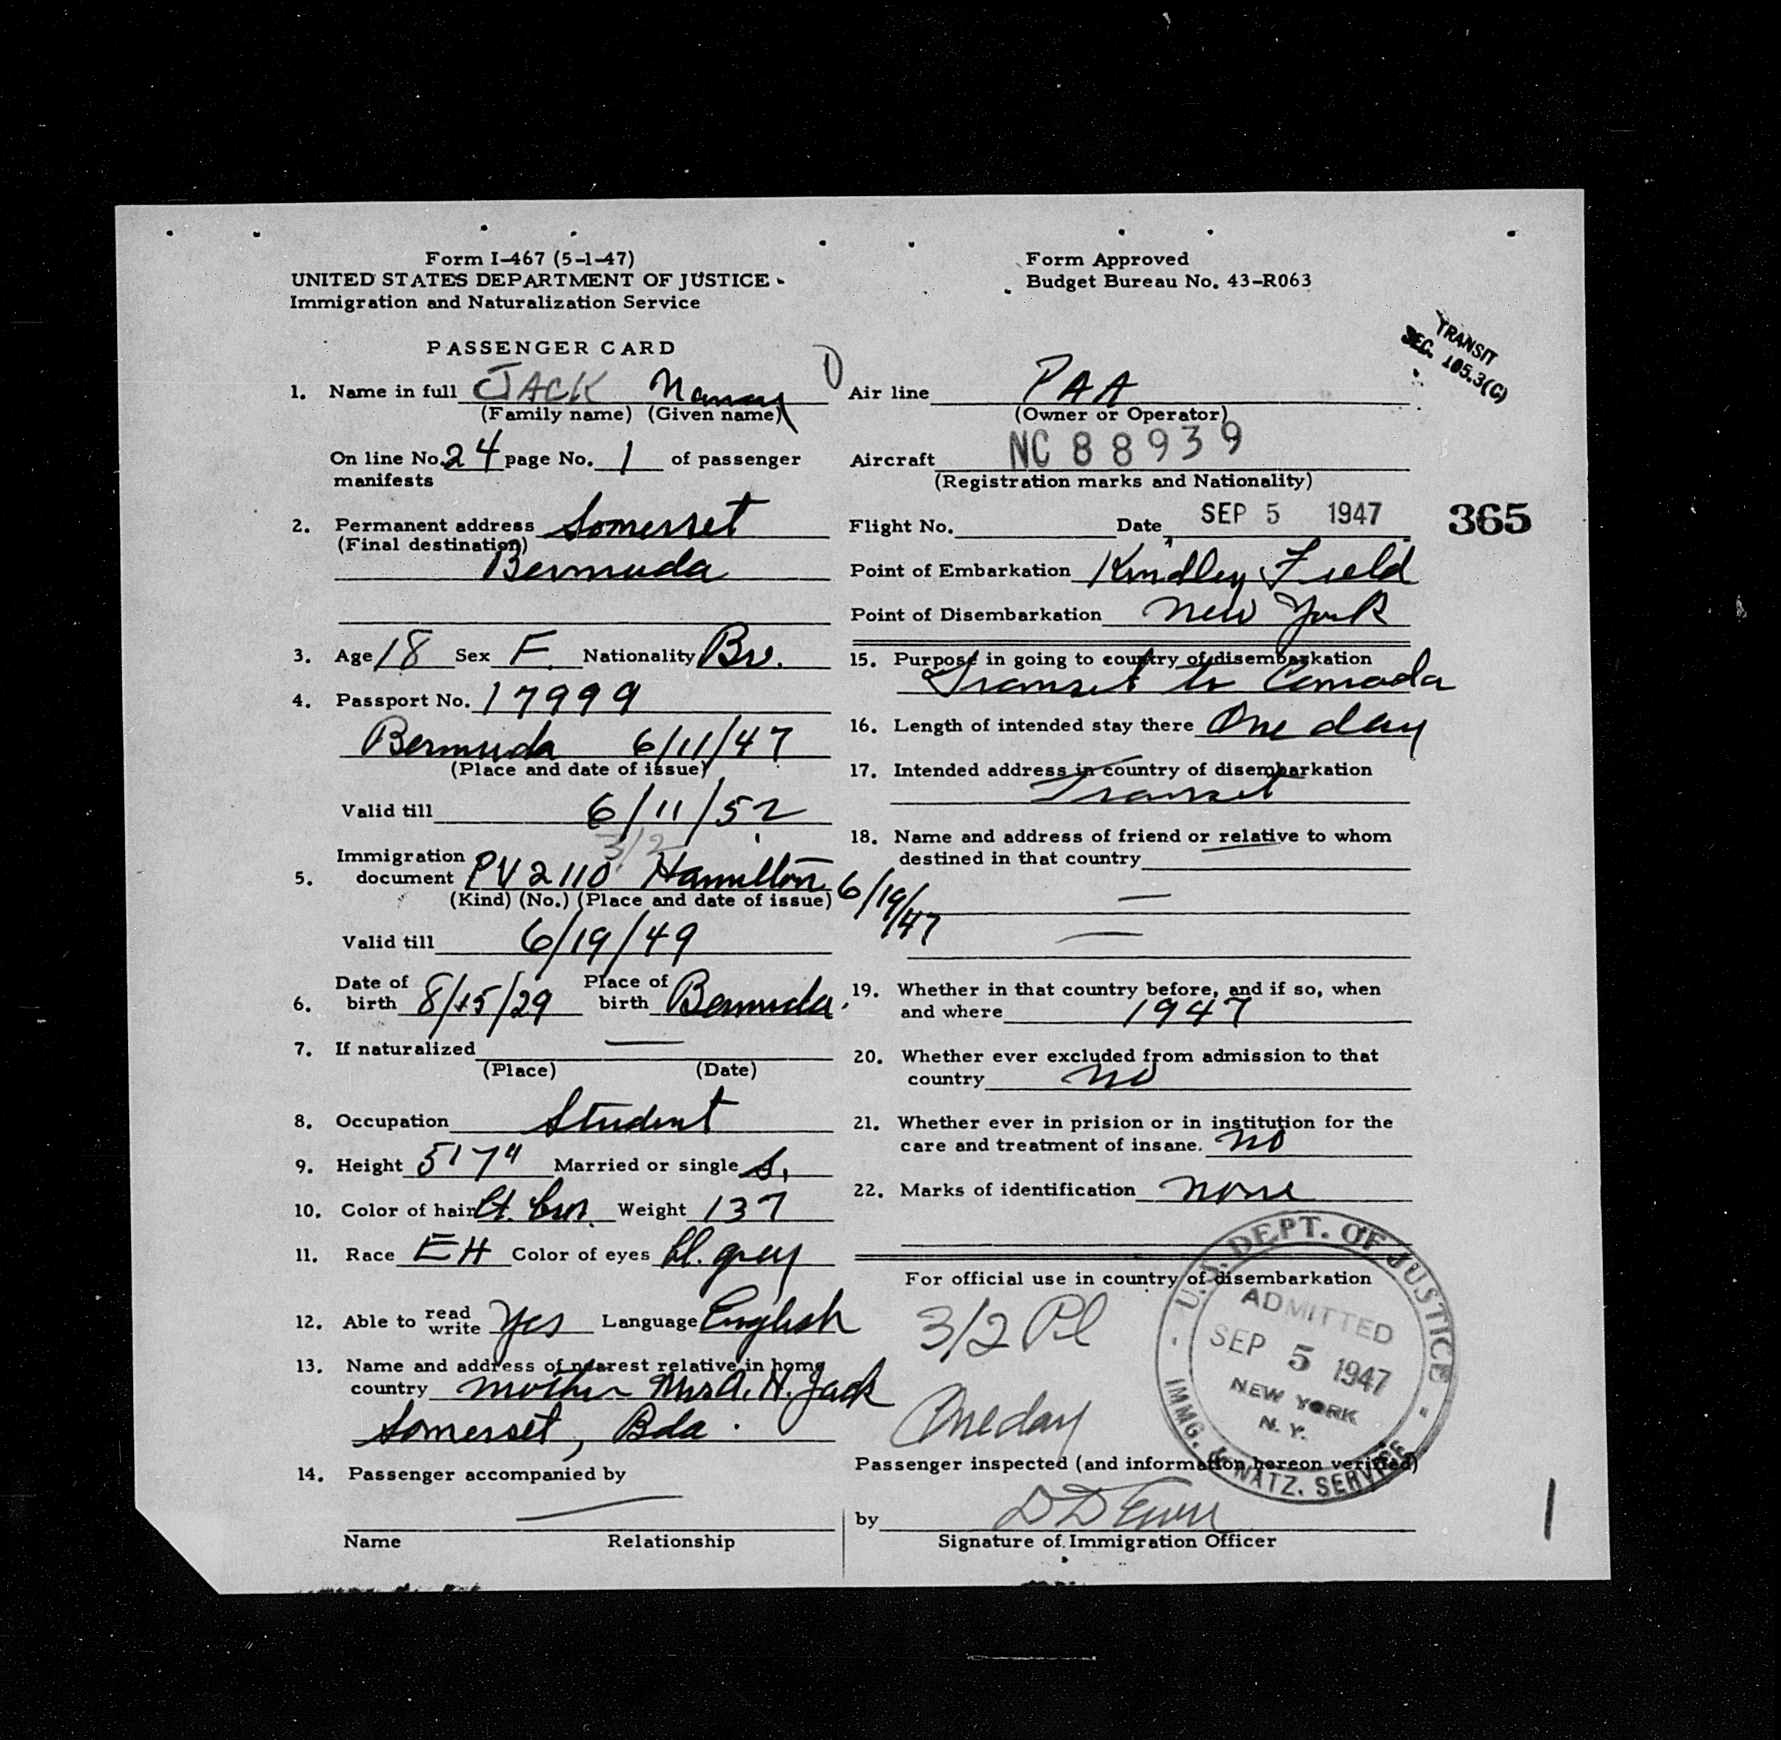 Form I-467 (5-1-47)
UNITED STATES DEPARTMENT OF JUSTICE
Immigration and Naturalization Service
PASSENGER CARD
1. Name in full JACK Nancy
(Family name) (Given name)
On line No. 24 page No. 1 of passenger
manifests
2. Permanent address Somerset
(Final destination)
Bermuda
3. Age 18 Sex F. Nationality Br.
4. Passport No. 17999
Bermuda 6/11/47
(Place and date of issue)
Valid till 6/11/52
3/2
Immigration
5. document PV 2110 Hamilton 6/19/47
(Kind) (No.) (Place and date of issue)
Valid till 6/19/49
6. Date of birth 8/15/29 Place of birth Bermuda.
7. If naturalized —
(Place) (Date)
8. Occupation Student
9. Height 5'7" Married or single S.
10. Color of hair Lt. brn. Weight 137
11. Race EH Color of eyes bl. grey
12. Able to read write Yes Language English
13. Name and address of nearest relative in home
country mother Mrs A. H. Jack
Somerset, Bda.
14. Passenger accompanied by
—
Name Relationship
Form Approved
Budget Bureau No. 43-R063
TRANSIT
SEC. 105.3(C)
Air line PAA
(Owner or Operator)
Aircraft NC 88939
(Registration marks and Nationality)
Flight No. Date SEP 5 1947
365
Point of Embarkation Kindley Field
Point of Disembarkation New York
15. Purpose in going to country of disembarkation
Transit to Canada
16. Length of intended stay there One day
17. Intended address in country of disembarkation
Transit
18. Name and address of friend or relative to whom
destined in that country
—
—
19. Whether in that country before, and if so, when
and where 1947
20. Whether ever excluded from admission to that
country no
21. Whether ever in prision or in institution for the
care and treatment of insane. no
22. Marks of identification none
For official use in country of disembarkation
3/2 Pl
One day
U.S. DEPT. OF JUSTICE
ADMITTED
SEP 5 1947
NEW YORK
N. Y.
IMMG. & NATZ. SERVICE
Passenger inspected (and information hereon verified)
by
Signature of Immigration Officer